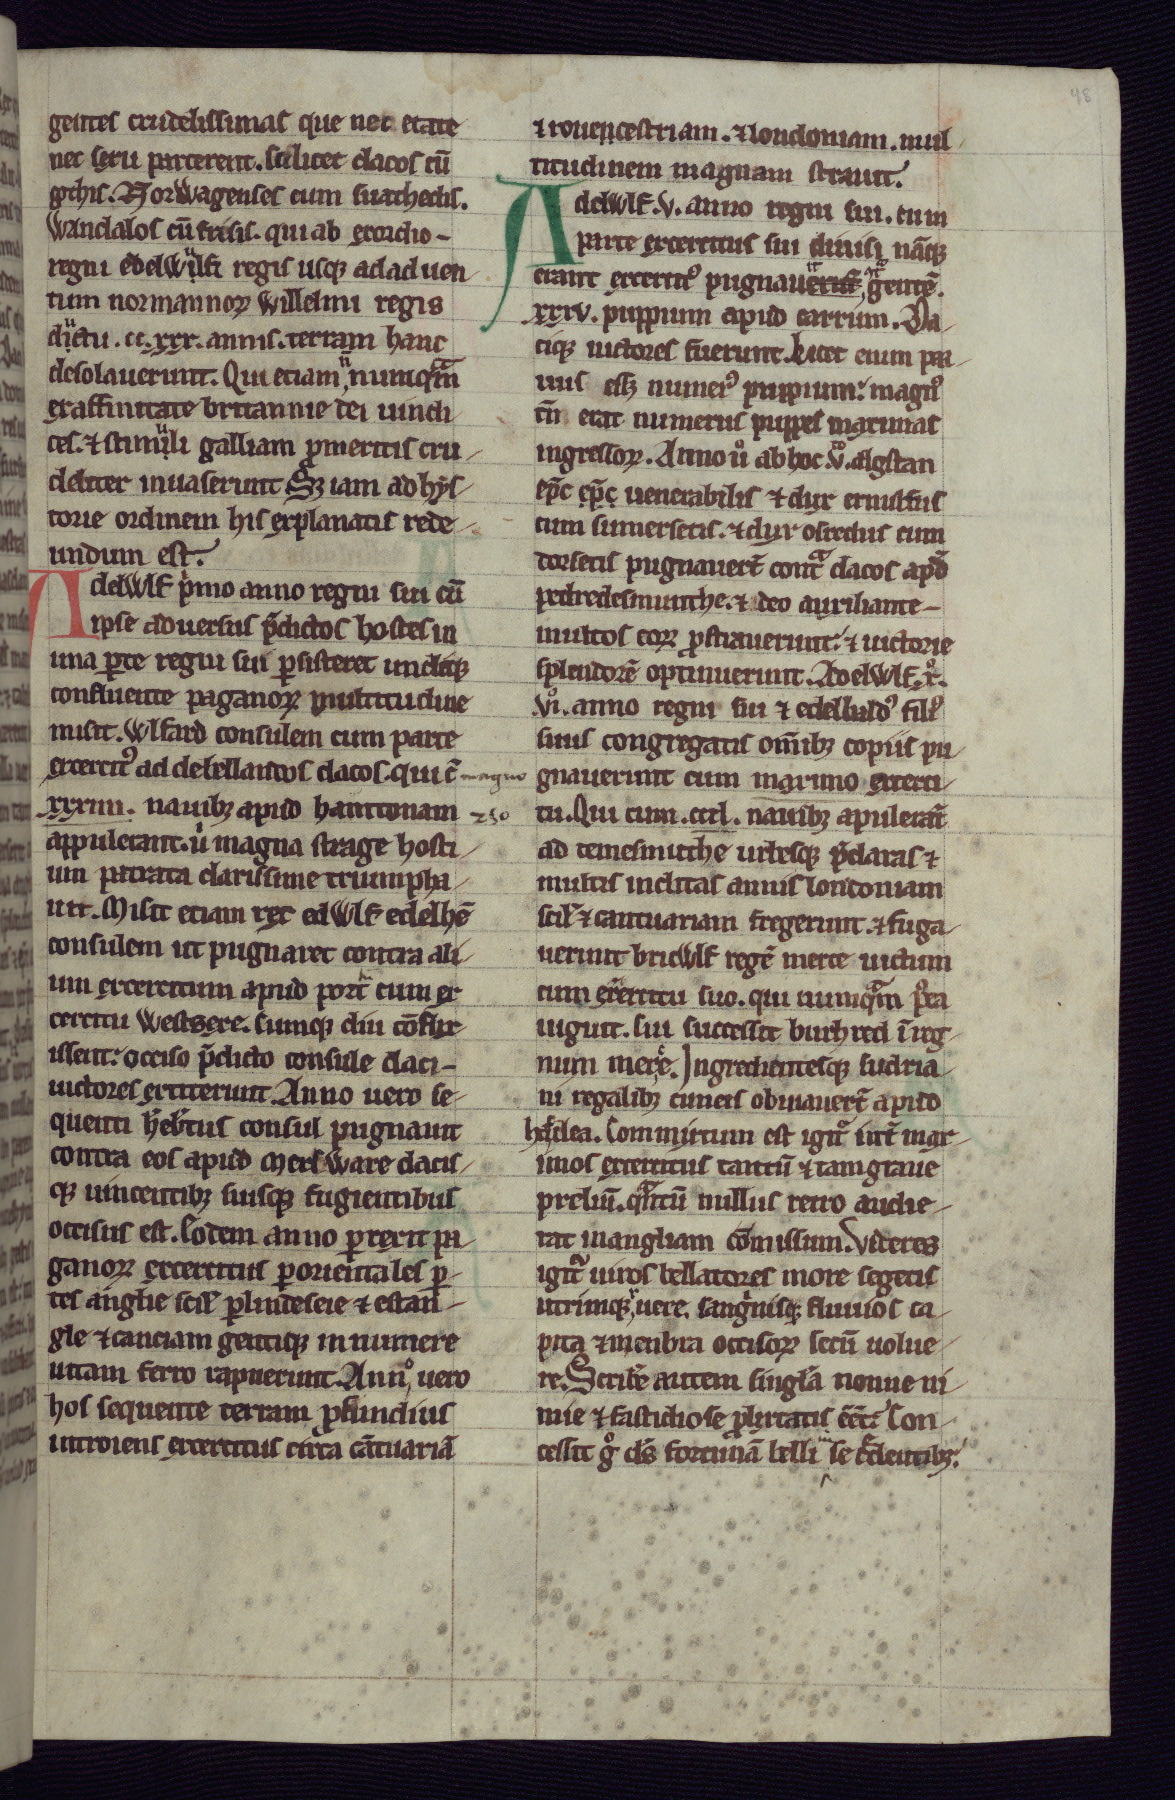 48
gentes crudelissimas que nec etate
nec sexu parcerent. scilicet dacos cū
gothis. Norwagenses cum suathedis.
Wandalos cū fresis. qui ab exordio
regni edelwulfi regis usq; ad aduen
tum normannoꝝ Willelmi regis
ductu. cc. xxx. annis. terram hanc
desolauerunt. Qui etiam nunquam
ex affinitate britannie dei uindi
ces. & stimuli galliam p meritis cru
deliter inuaserunt Sꝫ iam ad hys
torie ordinem his explanatis rede
undum est.
Adelwlf pimo anno regni sui cū
ipse aduersus p̄dictos hostes in
una parte regni sui psisteret undiq;
confluente paganoꝝ multitudine
misit. Wlfard consulem cum parte
exercitꝰ ad debellandos dacos. qui ē
magno
xxxiiii. nauibꝫ apud hamtonam
250
appulerant. u magna strage hosti
um patrata clarissime triumpha
uit. Misit etiam rex edwlf edelhē
consulem ut pugnaret contra ali
um exercitum apud port cum ex
cercitu Westsexe. Cumq; diu cōflix
issent: occiso p̄dicto consule daci
uictores extiterunt. Anno uero se
quenti hebtus consul pugnauit
contra eos apud Mersware dacis
q; uincentibꝫ suisq; fugientibus
occisus est. Eodem anno prexit pa
ganoꝝ exercitus p orientales p
tes anglie scil plindeseie & estan
gle & canciam gentisq; innumere
uitam ferro rapuerunt. Anno uero
hos sequente terram pfundius
introiens exercitus circa cātuariā
& rouencestriam. & londoniam. mul
titudinem magnam strauit.
Adelwlf. v. anno regni sui. cum
parte exercitus sui diuisi nāq;
erant exercitꝰ pugnau gentē.
xxxv. puppium apud carrum. Da
ciq; uictores fuerunt. Licet enim par
uus esꝫ numerꝰ puppium: magnꝰ
tn̄ erat numerus puppes maximas
ingressoꝝ. Anno u̇ ab hoc. v. algstan
ep̄c ep̄c uenerabilis & dux ernulfus
cum sumersetis. & dux osredus cum
dorsetis pugnauert̄ cont̄ dacos apd
pedredesmunthe. & deo auxiliante
multos eoꝝ pstrauerunt: & uictorie
splendorē optinuerunt. Adelwlf. x.
vı. anno regni sui & edelbaldꝰ filiꝰ
suus congregatis omībꝫ copiis pu
gnauerunt cum maximo exerci
tu. Qui cum. ccl. nauibꝫ apulerat̄
ad temesmuthe urbesq; p̄claras &
multis inclitas annis londoniam
scil & cantuariam fregerunt. & fuga
uerunt bricwlf regē merce uictum
cum exercitu suo. qui numquam postea
uiguit. sui successit burhred ī reg
num merce. Ingredientesq; sudria
ni regalibꝫ cuneis obuiauert̄ apud
hedlea. Commixtum est igit̄ int̄ max
imos exercitus tantū & tam graue
preliū. quantū nullus retro audie
rat in angliam cōmissum. Videres
igit̄ uiros bellatores more segetis
utrimq; ruere. sanguinisq; fluuios ca
pita & menbra occisoꝝ secū uolue
re. Scribe autem singla nonne ni
mie & fastidiose plixitatis eēt? Con
cessit g̊ ds fortunā belli in se credentibꝫ.